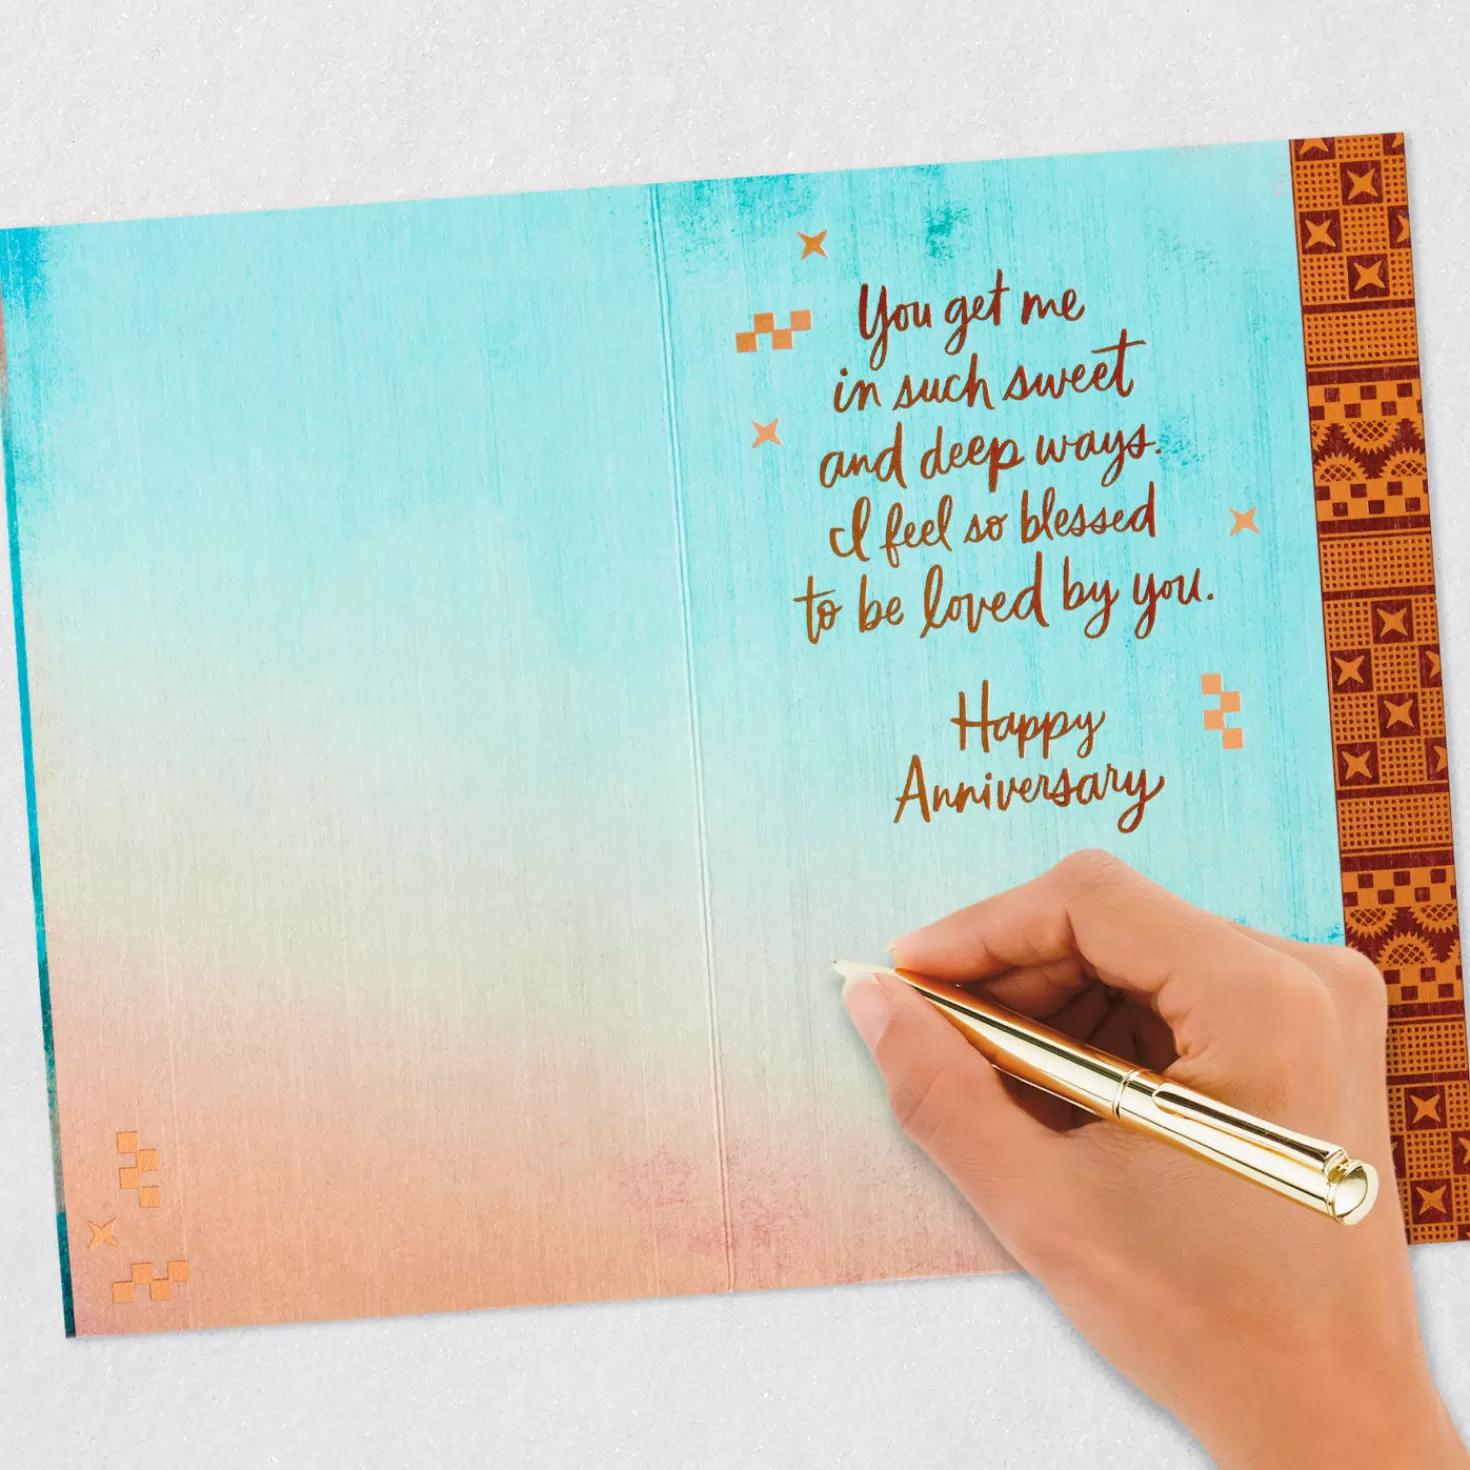 You get me
in such sweet
and deep ways.
I feel so blessed
to be loved by you.
Happy
Anniversary